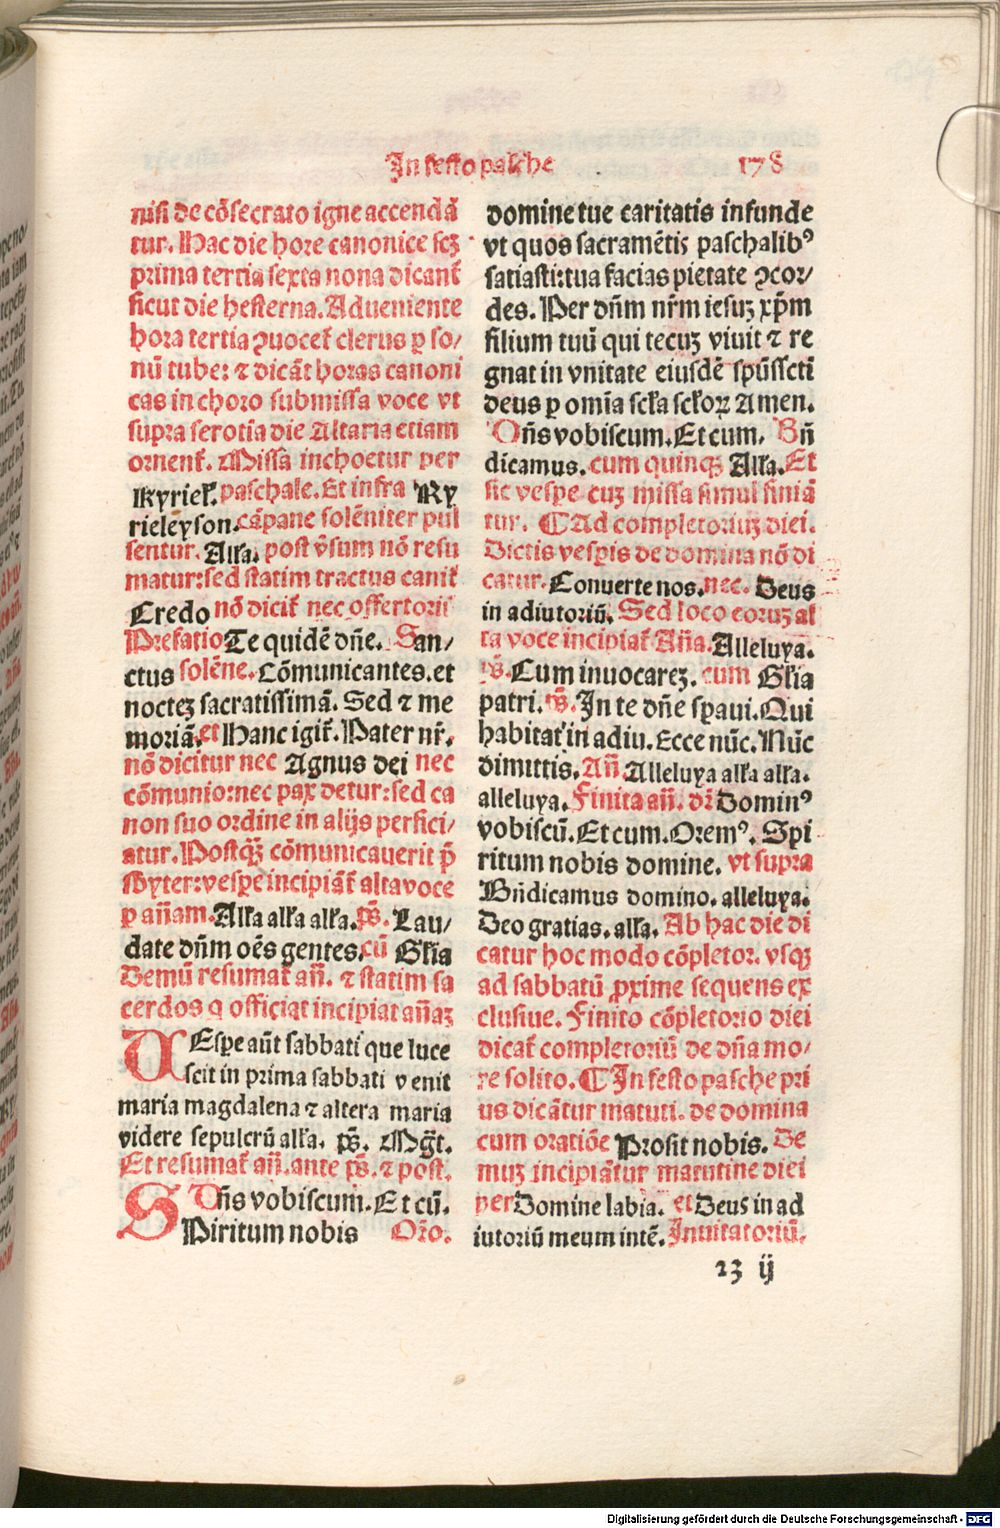 In festo pasche 178
nisi de cōsecrato igne accendā
tur. Hac die hore canonice scꝫ
prima tertia sexta nona dicant᷑
sicut die hesterna. Adueniente
hora tertia ꝯuocet᷑ clerus ꝑ so/
nū tube: ⁊ dicāt horas canoni
cas in choro submissa voce vt
supra serotīa die Altaria etiam
ornent᷑. Missa inchoetur per
Kyriel᷑. paschale. Et infra Ky
rieleyson. cāpane solēniter pul
sentur. Alła. post v̄sum nō resu
matur: sed statim tractus canit᷑
Credo nō dicit᷑ nec offertoriū
Prefatio Te quidē dn̄e. San/
ctus solēne. Cōmunicantes. et
nocteꝫ sacratissimā. Sed ⁊ me
moriā. et Hanc igit᷑. Pater nr̄.
nō dicitur nec Agnus dei nec
cōmunio: nec pax detur: sed ca
non suo ordine in alijs perfici/
atur. Postqꝫ cōmunicauerit p̄
sbyter: vesꝑe incipiāt᷑ alta voce
ꝑ an̄am. Alła alła alła. p̄s. Lau/
date dn̄m oēs gentes. cū Głia
Demū resumat᷑ an̄. ⁊ statim sa
cerdos q officiat incipiat an̄aꝫ
VEsꝑe aūt sabbati que luce
scit in prima sabbati venit
maria magdalena ⁊ altera maria
videre sepulcrū alła. p̄s. Mg̅t.
Et resumat᷑ an̄. ante p̄s. ⁊ post.
Dn̄s vobiscum. Et cū.
SPiritum nobis Orō.
domine tue caritatis infunde
vt quos sacramētis paschalibꝰ
satiasti: tua facias pietate ꝯcor/
des. Per dn̄m nr̄m iesuꝫ xp̄m
filium tuū qui tecuꝫ viuit ⁊ re
gnat in vnitate eiusdē spūssctī
deus ꝑ omīa scła scłoꝝ Amen.
Dn̄s vobiscum. Et cum. Bn̄
dicamus. cum quinqꝫ Alła. Et
sic vesꝑe cuꝫ missa simul finiā
tur. ¶ Ad completoriuꝫ diei.
Dictis vesꝑis de domina nō di
catur. Conuerte nos. nec. Deus
in adiutoriū. Sed loco eoruꝫ al
ta voce incipiat᷑ An̄a. Alleluya.
p̄s. Cum inuocareꝫ. cum Głia
patri. p̄s. In te dn̄e sꝑaui. Qui
habitat᷑ in adiu. Ecce nūc. Nūc
dimittis. An̄. Alleluya alła alła.
alleluya. Finita an̄. dr̄ Dominꝰ
vobiscū. Et cum. Oremꝰ. Spi
ritum nobis domine. vt supra
Bn̄dicamus domino. alleluya.
Deo gratias. alła. Ab hac die di
catur hoc modo cōpletor. vsqꝫ
ad sabbatū ꝓxime sequens ex
clusiue. Finito cōpletorio diei
dicat᷑ completoriū de dn̄a mo/
re solito. ¶ In festo pasche pri
us dicātur matuti. de domina
cum oratiōe Prosit nobis. De
muꝫ incipiātur matutine diei
per Domine labia. et Deus in ad
iutoriū meum intē. Inuitatoriū.
23 ij
Digitalisierung gefördert durch die Deutsche Forschungsgemeinschaft - DFG